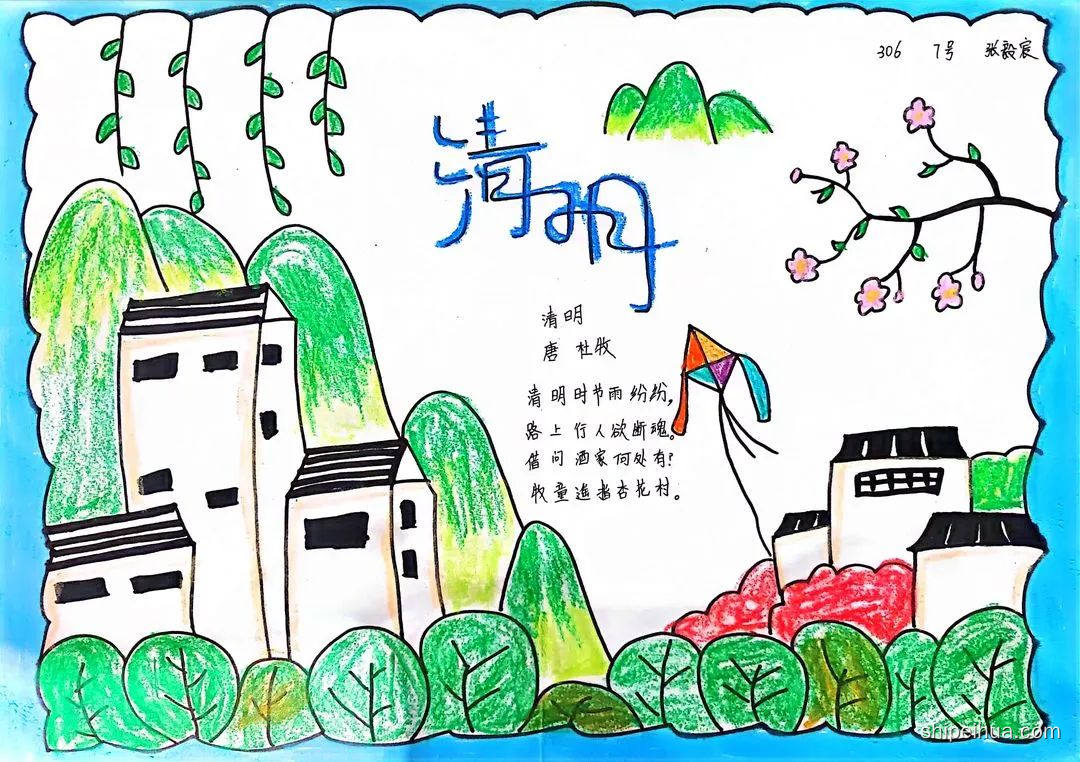 306 7号 张毅宸
清明
清明
唐 杜牧
清明时节雨纷纷,
路上行人欲断魂。
借问酒家何处有?
牧童遥指杏花村。
shipeihua.com